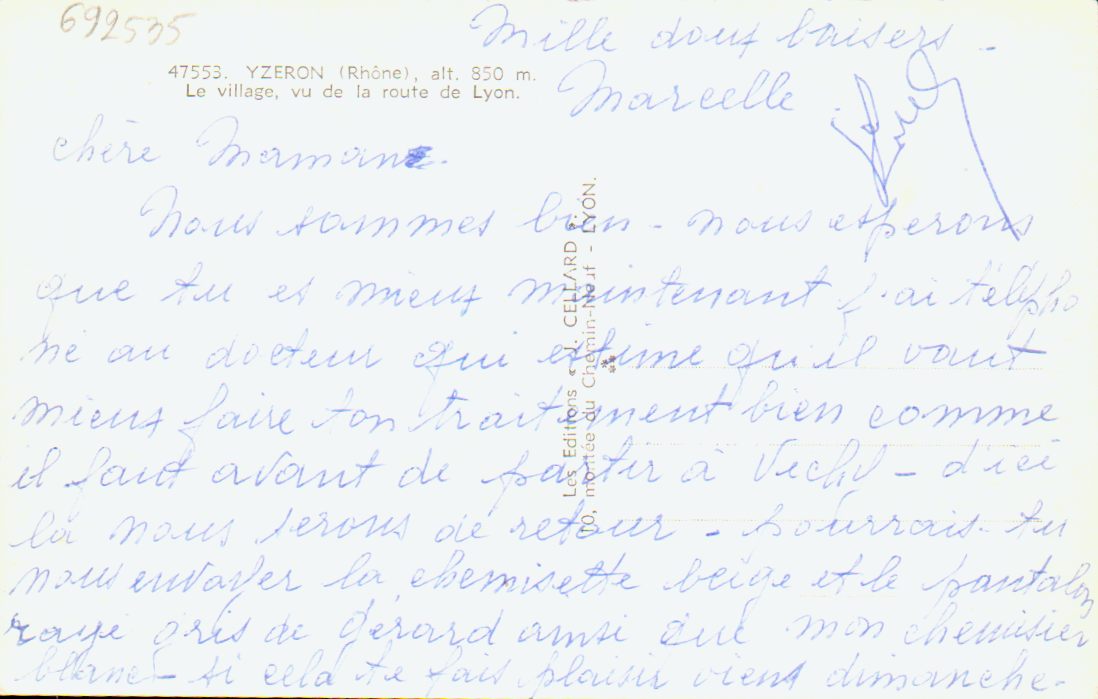 692535
Mille doux baisers -
47553. YZERON (Rhône), alt. 850 m.
Le village, vu de la route de Lyon.
Marcelle.
chère Maman.
Nous sommes bien - nous esperons
que tu es mieux maintenant j'ai télépho
né au docteur qui estime qu'il vaut
mieux faire ton traitement bien comme
il faut avant de partir à Vichy - d'ici
là nous serons de retour - pourrais-tu
nous envoyer la chemisette beige et le pantalon
rayé gris de Gérard ainsi que mon chemisier
blanc - si cela te fais plaisir viens dimanche -
Les Editions « J. CELLARD »
10, montée du Chemin-Neuf - LYON.